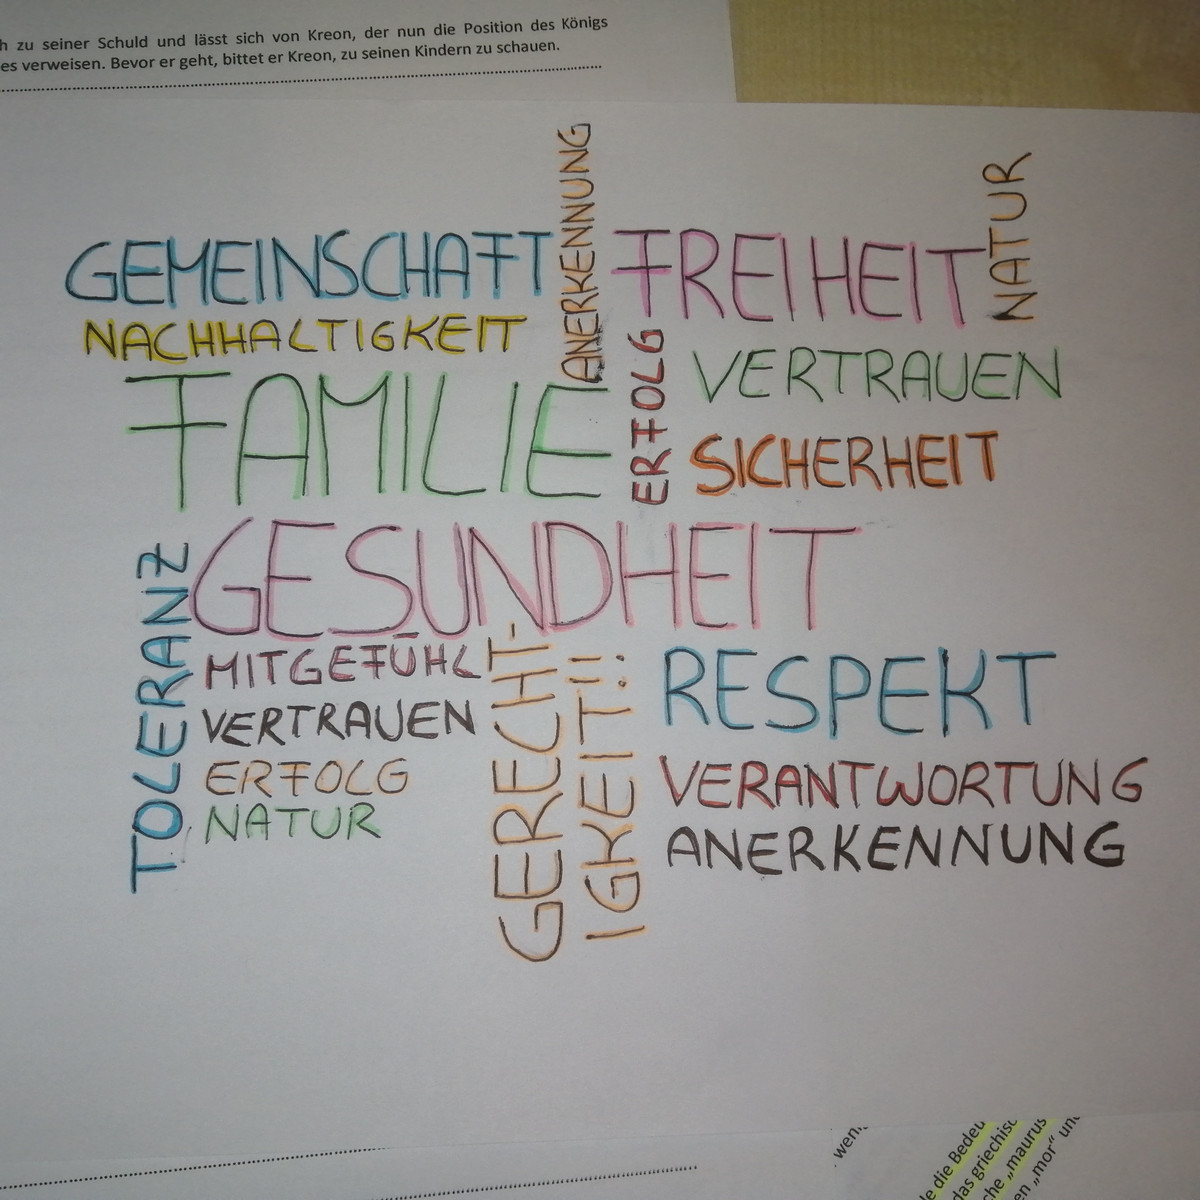 h zu seiner Schuld und lässt sich von Kreon, der nun die Position des Königs
es verweisen. Bevor er geht, bittet er Kreon, zu seinen Kindern zu schauen.
GEMEINSCHAFT
ANERKENNUNG
FREIHEIT
NATUR
NACHHALTIGKEIT
FAMILIE
ERFOLG
VERTRAUEN
SICHERHEIT
GESUNDHEIT
TOLERANZ
MITGEFÜHL
VERTRAUEN
ERFOLG
NATUR
GERECHT-
IGKEIT!!
RESPEKT
VERANTWORTUNG
ANERKENNUNG
wenn
le die Bedeu
das griechisc
che „maurus
en „mor“ und